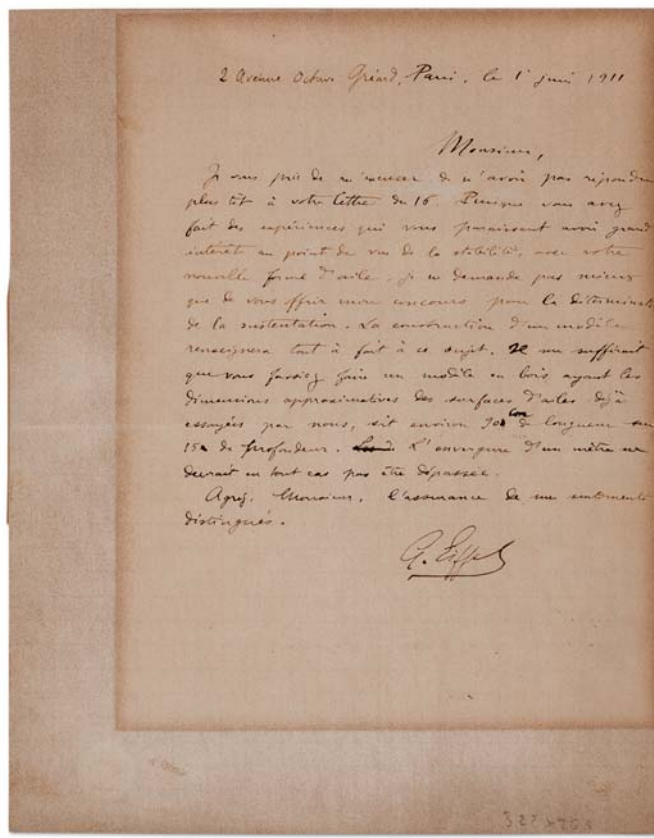 2 Avenue Octave Gréard, Paris, le 1er juin 1911
Monsieur,
Je vous prie de m'excuser de n'avoir pas répondu
plus tôt à votre lettre du 16. Puisque vous avez
fait des expériences qui vous paraissent avoir grand
intérêt au point de vue de la stabilité, avec votre
nouvelle forme d'aile, je ne demande pas mieux
que de vous offrir mon concours pour la
de la sustentation. La construction d'un modèle
renseignera tout à fait à ce sujet. Il me suffirait
que vous fassiez faire un modèle en bois ayant les
dimensions approximatives des surfaces d'ailes déjà
essayées par nous, soit environ de longueur sur
15 de profondeur. L'envergure d'un mètre ne
devrait en tout cas pas être dépassée.
Agréez, Monsieur, l'assurance de mes sentiments
distingués.
G. Eiffel